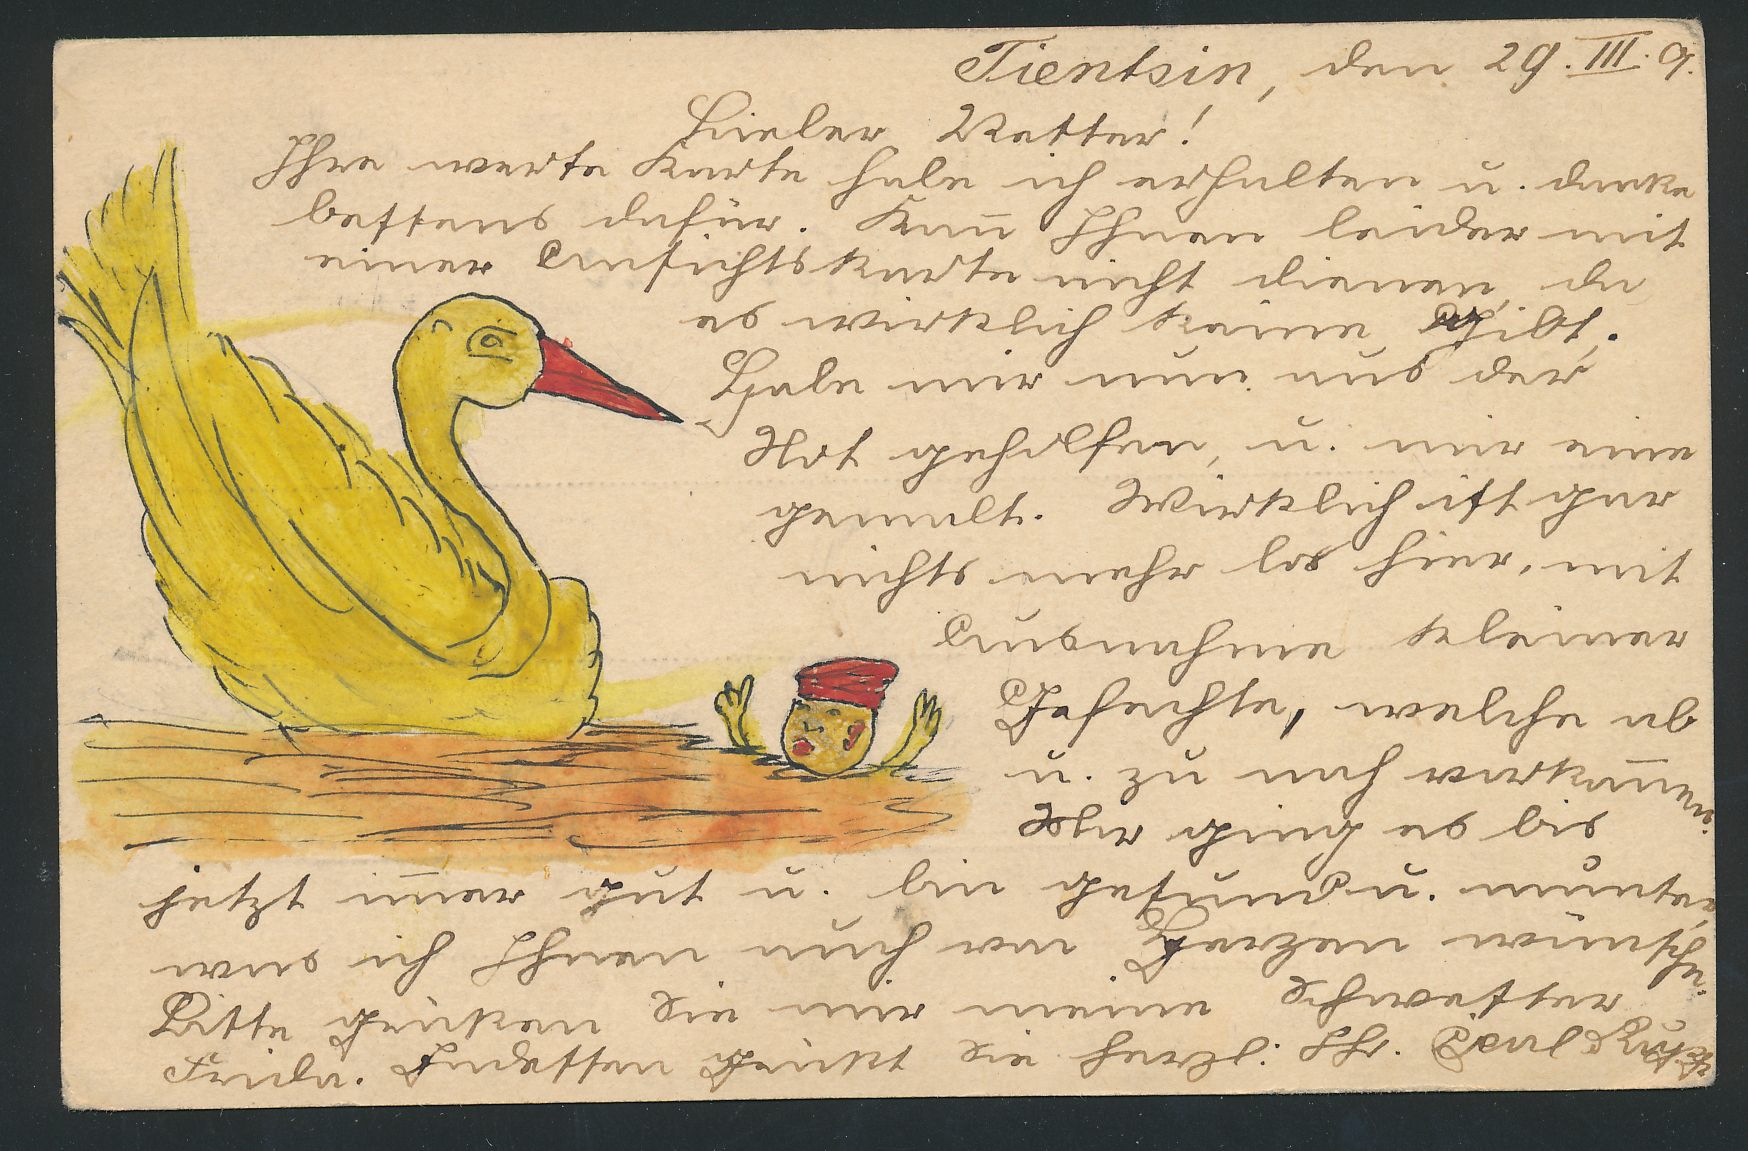 Tientsin, den 29. III. 9.
Lieber Vetter!
Ihre werte Karte habe ich erhalten u. danke
bestens dafür. Kan̄ Ihnen leider mit
einer Ansichtskarte nicht dienen, da
es wirklich keine gibt.
Habe mir nun aus der
Not geholfen, u. mir eine
gemalt. Wirklich ist gar
nichts mehr los hier, mit
Ausnahme kleiner
Gefechte, welche ab
u. zu noch vorkom̄en.
Mir ging es bis
jetzt im̄er gut u. bin gesund u. munter,
was ich Ihnen auch von Herzen wünsche.
Bitte grüßen Sie mir meine Schwester
Frida. Indessen grüßt Sie herzl. Ihr. Paul